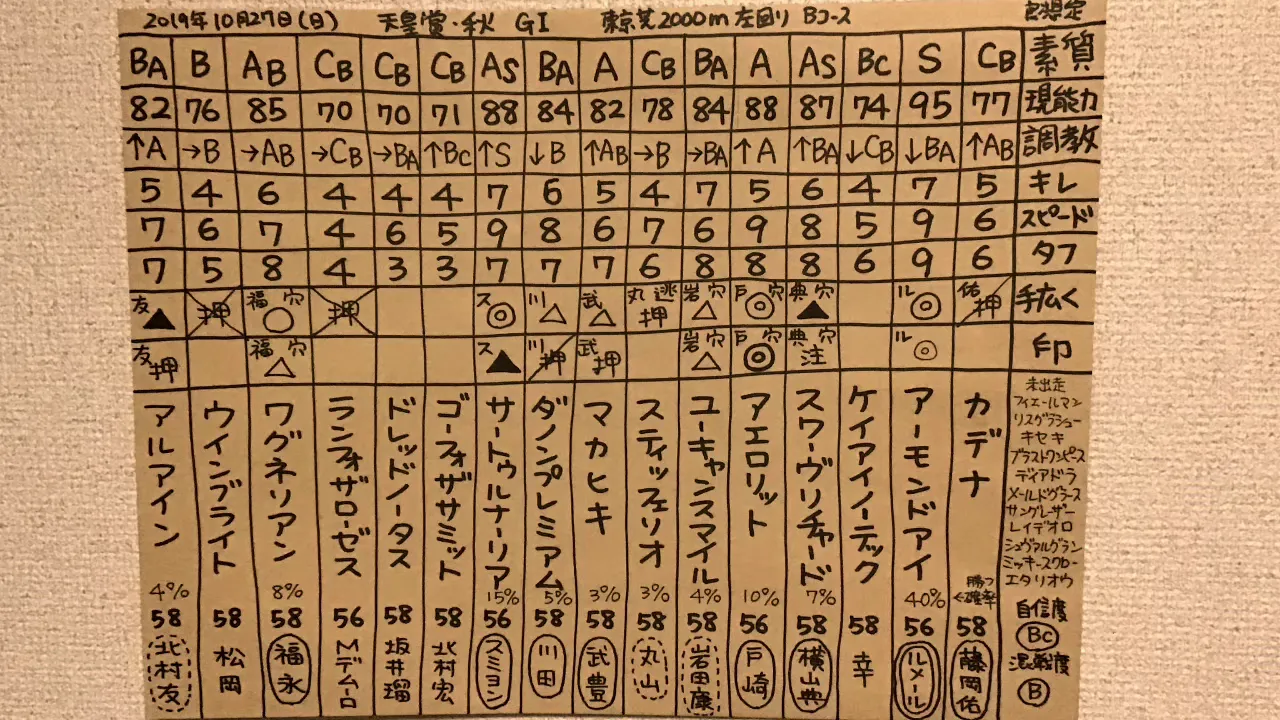 2019年10月27日(日) 天皇賞・秋 GI 東京芝2000m 左回り Bコース
BA B AB CB CB CB AS BA A CB BA A AS BC S CB 素質
82 76 85 70 70 71 88 84 82 78 84 88 87 74 95 77 現能力
↑A →B →AB →CB →BA ↑BC ↑S ↓B ↑AB →B →BA ↑A ↑BA ↓CB ↓BA ↑AB 調教
5 4 6 4 4 4 7 6 5 4 7 5 6 4 7 5 キレ
7 6 7 4 6 5 9 8 6 7 6 9 8 5 9 6 スピード
7 5 8 4 3 3 7 7 7 6 8 8 8 6 9 6 タフ
友▲ 押 福穴○ 押 ス◎ 川△ 武△ 丸逃押 岩穴△ 戸穴◎ 典穴▲ ル◎ 佑押 手広く
友押 福穴△ ス▲ 川押 武押 岩穴△ 戸穴◎ 典穴注 ル◎ 印
アルアイン
ウインブライト
ワグネリアン
ランフォザローゼス
ドレッドノータス
ゴーフォザサミット
サートゥルナーリア
ダノンプレミアム
マカヒキ
スティッフェリオ
ユーキャンスマイル
アエロリット
スワーヴリチャード
ケイアイノーテック
アーモンドアイ
カデナ
未出走
フィエールマン
リスグラシュー
キセキ
ブラストワンピース
ディアドラ
メールドグラース
サングレーザー
レイデオロ
シュヴァルグラン
ミッキースワロー
エタリオウ
4% 8% 15% 5% 3% 3% 4% 10% 7% 40% 勝つ
←確率
58 58 58 56 58 58 56 58 58 58 58 56 58 58 56 58 自信度
BC
北村友 松岡 福永 Mデムーロ 坂井瑠 北村宏 スミヨン 川田 武豊 丸山 岩田康 戸崎 横山典 幸 ルメール 藤岡佑 混戦度
B